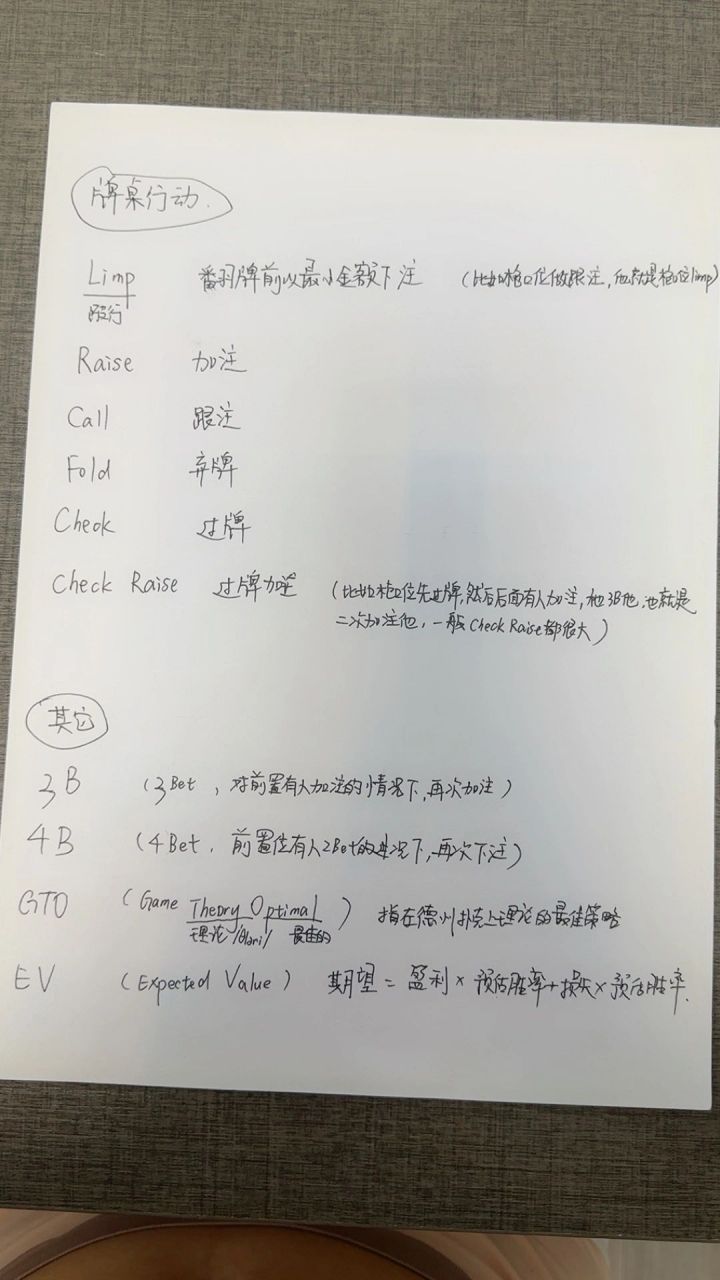 牌桌行动.
Limp 翻牌前以最小金额下注 (比如枪口位做跟注,他就是枪口位limp)
跛行
Raise 加注
Call 跟注
Fold 弃牌
Check 过牌
Check Raise 过牌加注 (比如枪口位先过牌,然后后面有人加注,他3B他,也就是
二次加注他,一般Check Raise都很大)
其它
3B (3Bet,对前置有人加注的情况下,再次加注)
4B (4Bet,前置位有人2Bet的情况下,再次下注)
GTO (Game Theory Optimal) 指在德州扑克上理论的最佳策略
理论 最佳的
EV (Expected Value) 期望=盈利×预估胜率+损失×预估胜率.